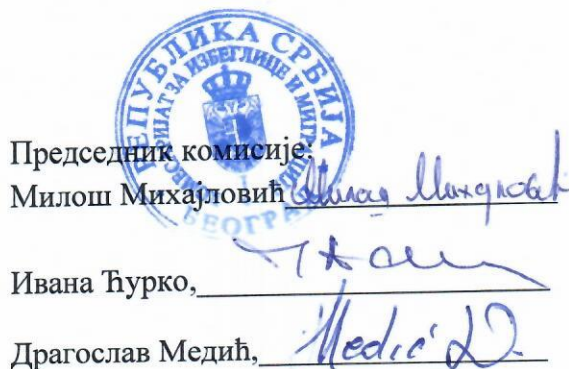 РЕПУБЛИКА СРБИЈА
КОМЕСАРИЈАТ ЗА ИЗБЕГЛИЦЕ И МИГРАЦИЈЕ
БЕОГРАД
Председник комисије:
Милош Михајловић
Ивана Ћурко,
Драгослав Медић, Medić D.